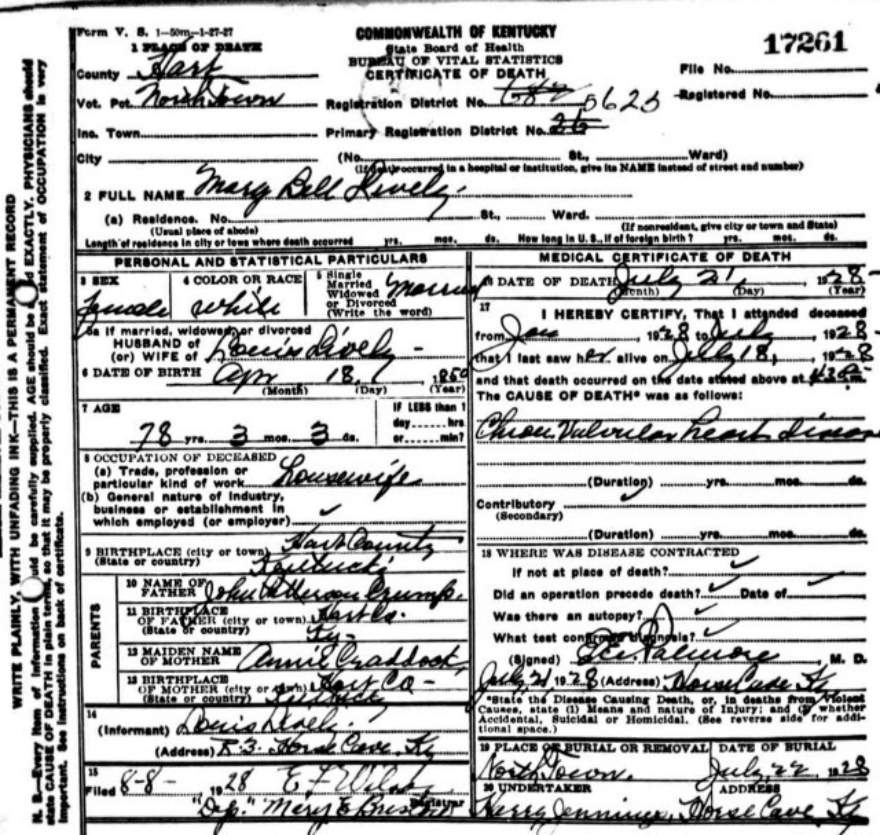 Form V. S. 1—50m—1-27-27
COMMONWEALTH OF KENTUCKY
State Board of Health
BUREAU OF VITAL STATISTICS
CERTIFICATE OF DEATH
17261
File No.
Registered No.
1 PLACE OF DEATH
County Hart
Vot. Pct. North Town
Registration District No. 5625
Inc. Town
Primary Registration District No.
City (No. St., Ward)
(If death occurred in a hospital or institution, give its NAME instead of street and number)
2 FULL NAME Mary Bell Lively
(a) Residence. No. St., Ward.
(Usual place of abode) (If nonresident, give city or town and State)
Length of residence in city or town where death occurred yrs. mos. ds. How long in U. S., if of foreign birth? yrs. mos. ds.
PERSONAL AND STATISTICAL PARTICULARS
3 SEX female
4 COLOR OR RACE white
5 Single Married Widowed or Divorced (Write the word) Married
5a If married, widowed, or divorced
HUSBAND of
(or) WIFE of Louis Lively
6 DATE OF BIRTH Apr 18, 1850
(Month) (Day) (Year)
7 AGE
78 yrs. 3 mos. 3 ds.
IF LESS than 1
day hrs
or min?
8 OCCUPATION OF DECEASED
(a) Trade, profession or
particular kind of work housewife
(b) General nature of industry,
business or establishment in
which employed (or employer)
9 BIRTHPLACE (city or town) Hart County
(State or country) Kentucky
PARENTS
10 NAME OF
FATHER John Crump
11 BIRTHPLACE
OF FATHER (city or town) Hart Co.
(State or country) Ky
12 MAIDEN NAME
OF MOTHER Annie Craddock
13 BIRTHPLACE
OF MOTHER (city or town) Hart Co
(State or country) Kentucky
14
(Informant) Louis Lively
(Address) R. 3. Horse Cave, Ky
15
Filed 8-8- 1928 E. F. Wilson
"Dep." Mary E. Registrar
MEDICAL CERTIFICATE OF DEATH
16 DATE OF DEATH July 21, 1928
(Month) (Day) (Year)
17
I HEREBY CERTIFY, That I attended deceased
from Jan, 1928 to July, 1928
that I last saw her alive on July 18, 1928
and that death occurred on the date stated above at m.
The CAUSE OF DEATH* was as follows:
Chron. Valvular heart disease
(Duration) yrs. mos. ds.
Contributory
(Secondary)
(Duration) yrs. mos. ds.
18 WHERE WAS DISEASE CONTRACTED
If not at place of death?
Did an operation precede death? Date of
Was there an autopsy?
What test confirmed diagnosis?
(Signed) Palmore, M. D.
July 21 1928 (Address) Horse Cave Ky
*State the Disease Causing Death, or, in deaths from Violent
Causes, state (1) Means and nature of Injury; and (2) whether
Accidental, Suicidal or Homicidal. (See reverse side for addi-
tional space.)
19 PLACE OF BURIAL OR REMOVAL DATE OF BURIAL
North Town. July, 22 1928
20 UNDERTAKER ADDRESS
Harry Jennings, Horse Cave Ky
WRITE PLAINLY, WITH UNFADING INK—THIS IS A PERMANENT RECORD
N. B.—Every item of information should be carefully supplied. AGE should be EXACTLY. PHYSICIANS should
state CAUSE OF DEATH in plain terms, so that it may be properly classified. Exact statement of OCCUPATION is very
important. See instructions on back of certificate.